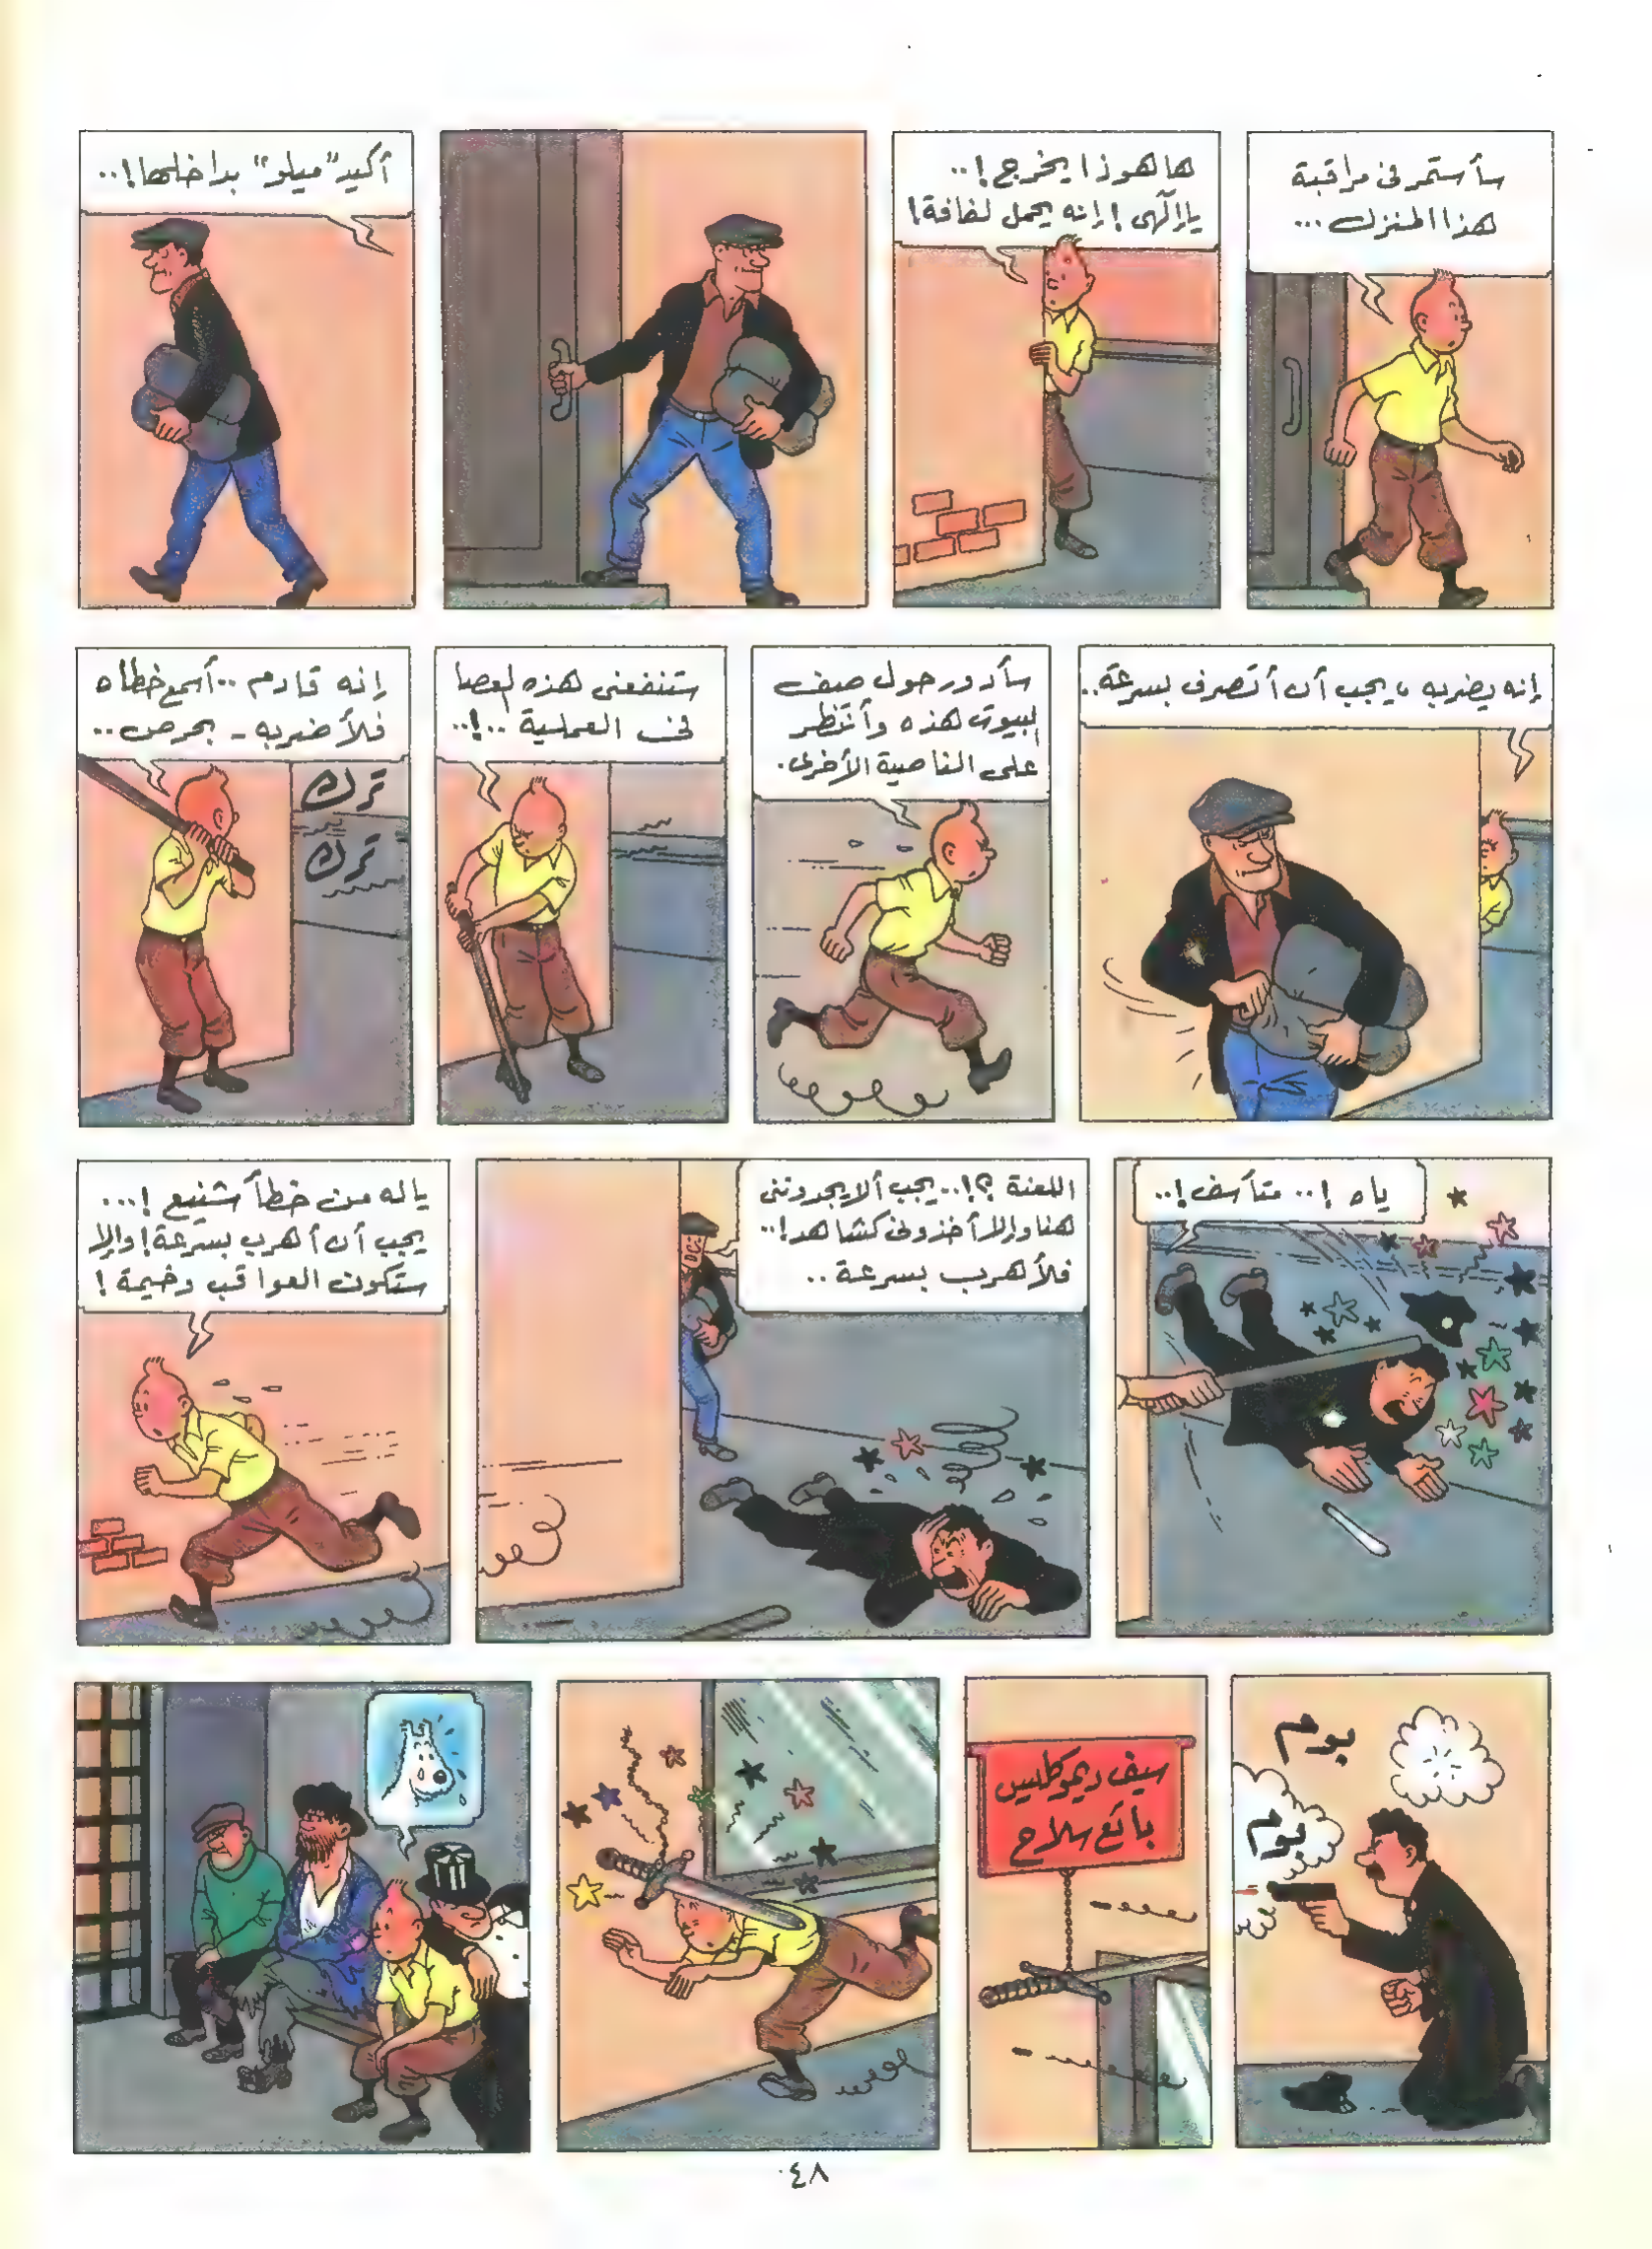 سأستمر فى مراقبة
هذا المنزل ...
ها هو ذا يخرج !..
يا إلهى ! إنه يحمل لفافة !
أكيد "ميلو" بداخلها !..
إنه يضربه ، يجب أن أتصرف بسرعة ..
سأدور حول صف
البيوت هذه وأنتظر
على الناصية الأخرى .
ستنفعنى هذه العصا
فى العملية ..!..
إنه قادم .. أسمع خطاه
فلأضربه - بحرص ..
ترك
ترك
ياه !.. متأسف !..
اللعنة ؟!.. يجب ألا يجدوننى
هنا وإلا أخذونى كشاهد !..
فلأهرب بسرعة ..
ياله من خطأ شنيع !...
يجب أن أهرب بسرعة ! وإلا
ستكون العواقب وخيمة !
بوم
بوم
سيف ديموكليس
بائع سلاح
٤٨